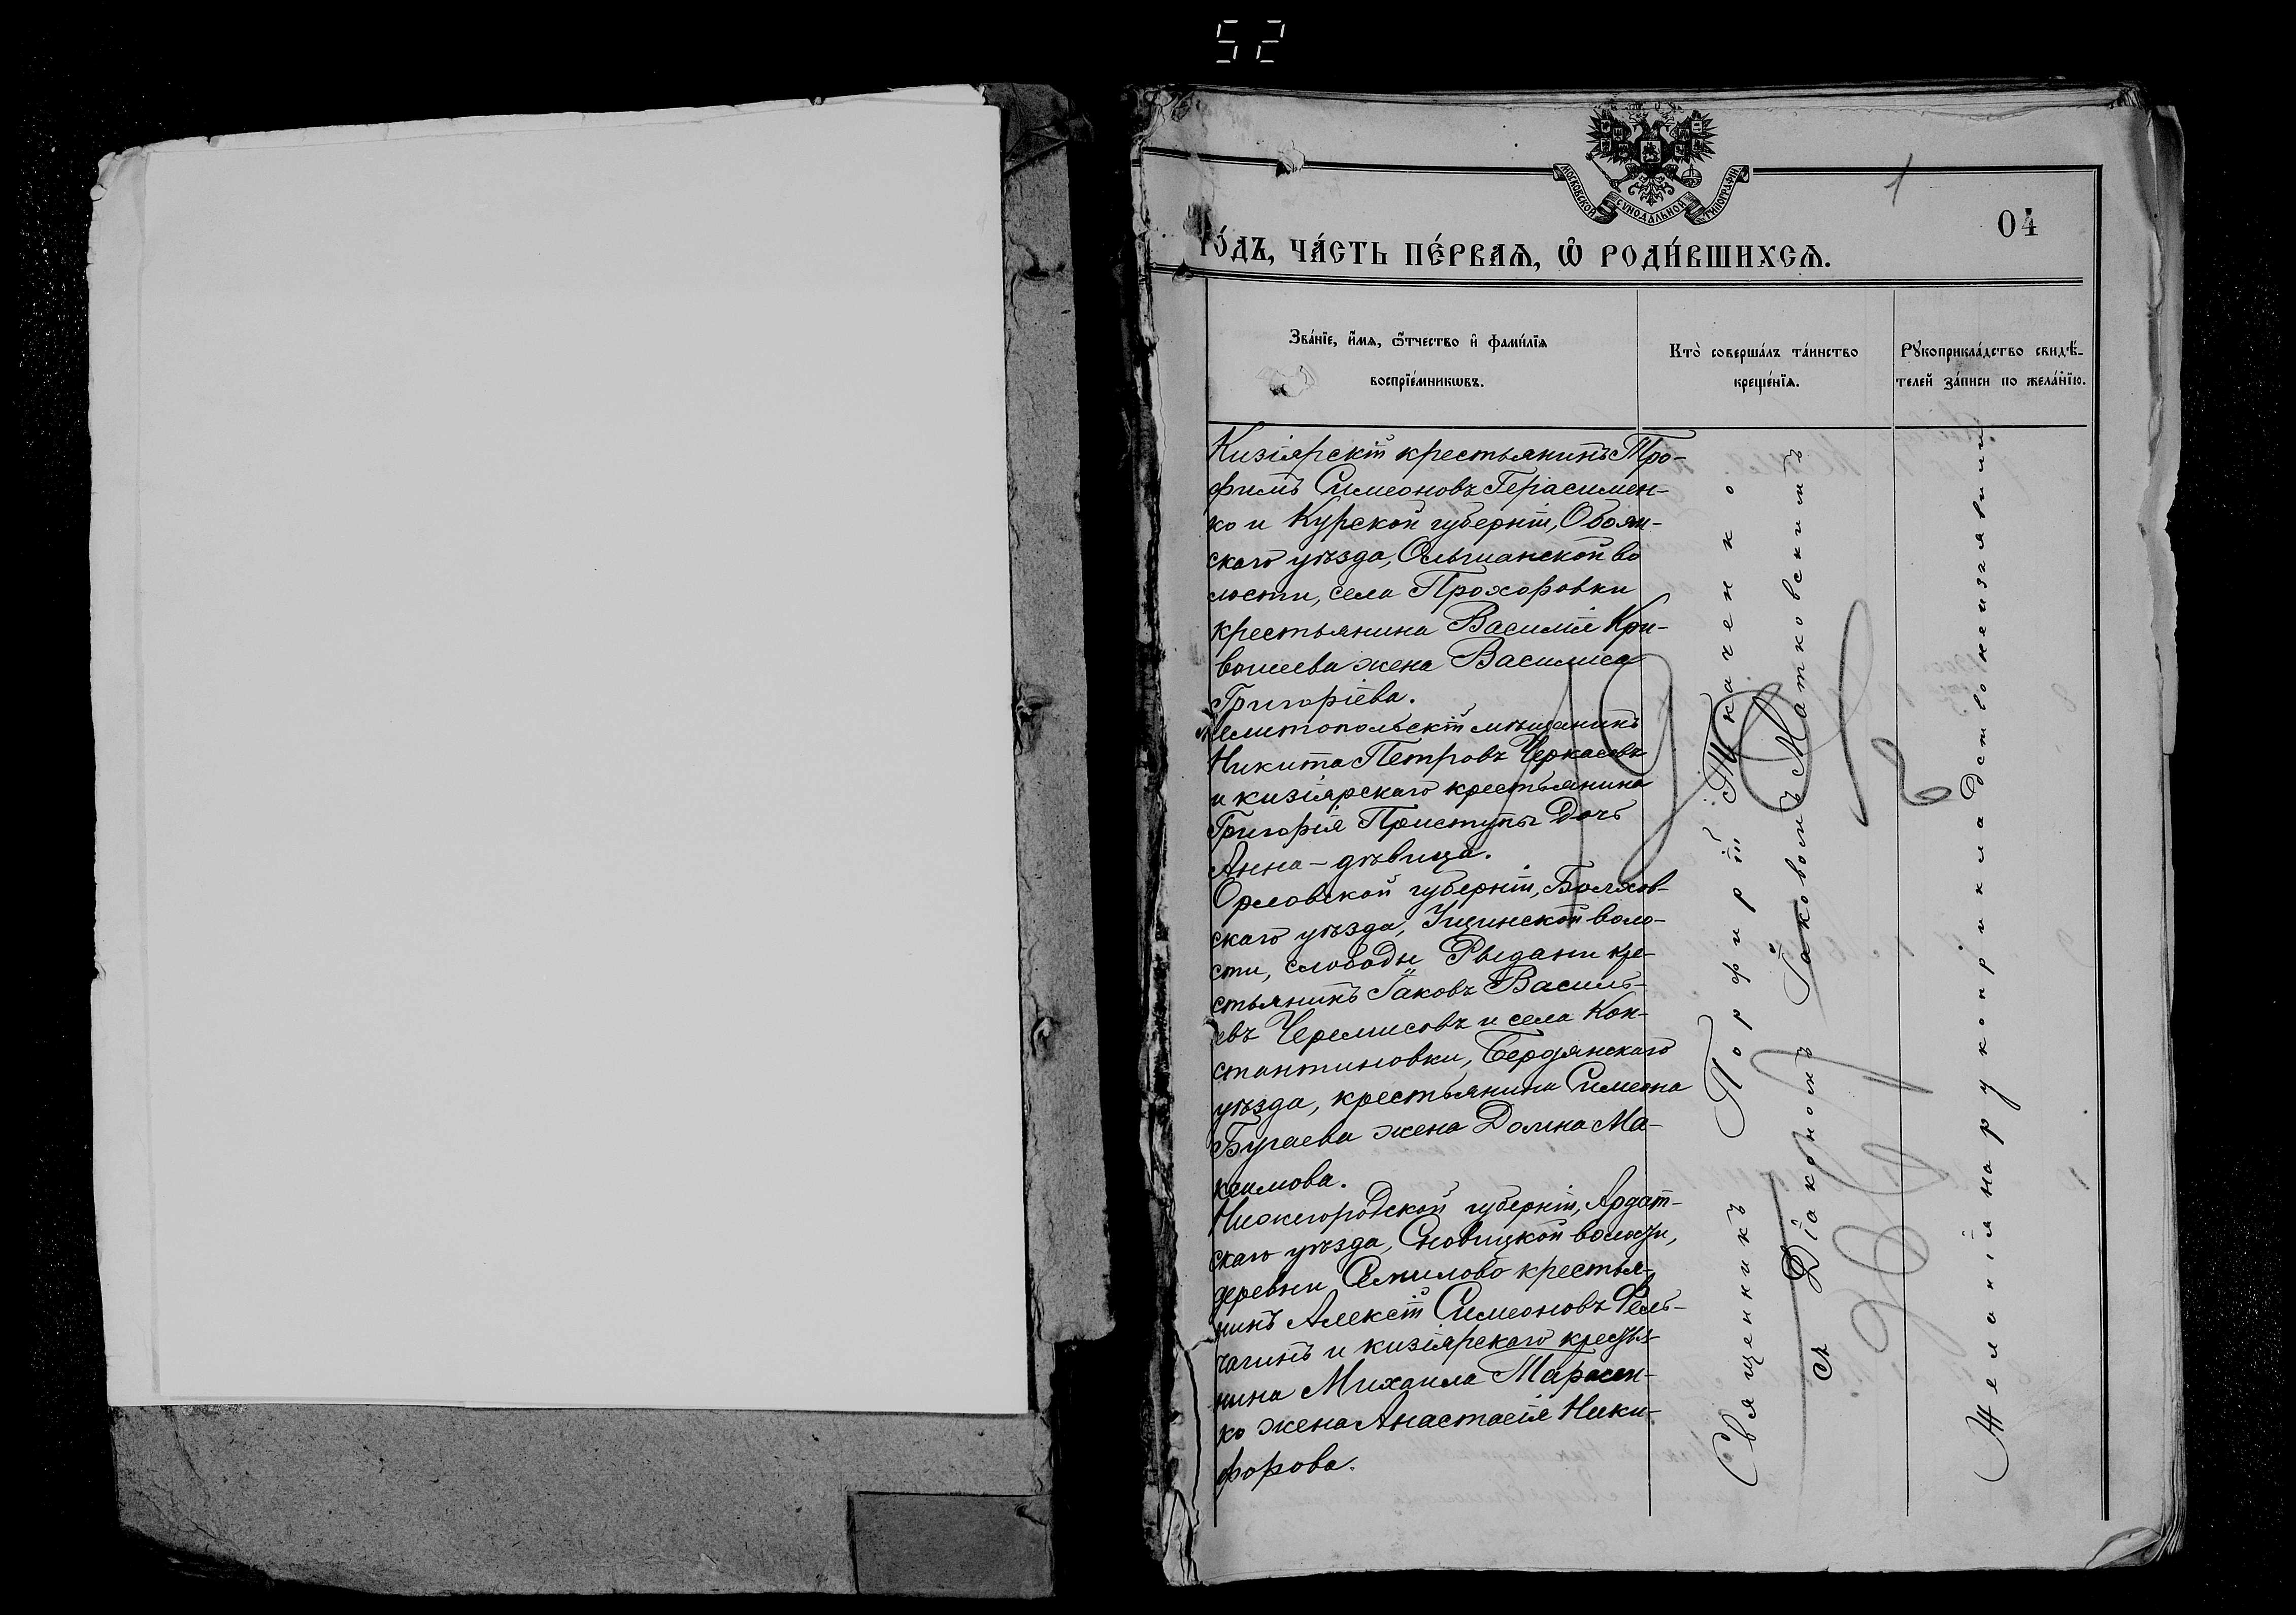 52
МОСКОВСКОЙ СѴНОДАЛЬНОЙ ТИПОГРАФІИ
1
04
го́дъ, ча́сть пе́рваѧ, ѡ҆ роди́вшихсѧ.
Зва́нїе, и҆́мѧ, ѻ҆́тчество и҆ фами́лїѧ
воспрїе́мникѡвъ.
Кто̀ соверша́лъ та́инство
креще́нїѧ.
Рꙋкоприкла́дство свидѣ́-
телей за́писи по жела́нїю.
Кизіярскій крестьянинъ Тро-
фимъ Симеоновъ Герасимен-
ко и Курской губерніи, Обоян-
скаго уѣзда, Ольшанской во
лости, села Прохоровки
крестьянина Василія Кри-
вошеева жена Василиса
Григоріева.
Мелитопольскій мѣщанинъ
Никита Петровъ Черкасовъ
и кизіярскаго крестьянина
Григорія Приступы дочь
Анна - дѣвица.
Орловской губерніи, Болхов-
скаго уѣзда, воло-
сти, слободы кре-
стьянинъ Іаковъ Василь-
евъ Черемисовъ и села Кон-
стантиновки, Бердянскаго
уѣзда, крестьянина Симеона
Бугаева жена Домна Ма-
ксимова.
Нижегородской губерніи, Ардат-
скаго уѣзда, волости,
деревни крестья-
нинъ Алексій Симеоновъ
и кизіярскаго крестья-
нина Михаила
ко жена Анастасія Ники-
форова.
Священникъ Порфирій Ткаченко
съ Діакономъ Іаковомъ Матковскимъ
Желанія на рукоприкладство не изъявили.